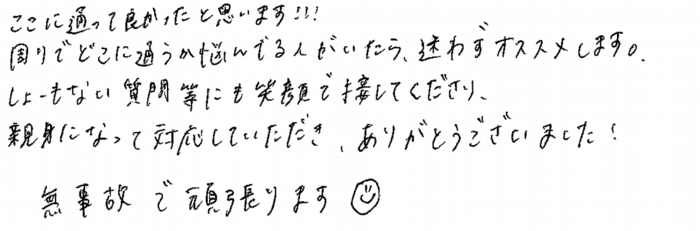 ここに通って良かったと思います!!!
周りでどこに通うか悩んでる人がいたら、迷わずオススメします。
しょーもない質問等にも笑顔で接してくださり、
親身になって対応していただき、ありがとうございました!
無事故で頑張ります☺